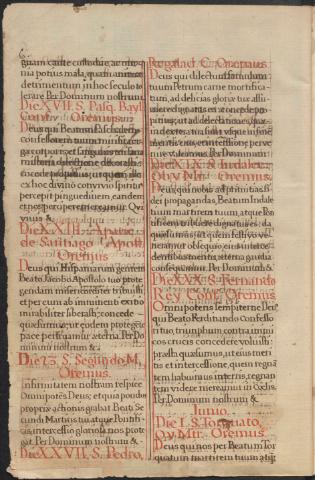 quam cante custodiæ, ac mo
nia potius mala, quam animæ
detrimentum in hoc seculo to
lerare. Per Dominum nostrum
Die XVII. S. Pasq. Bayl.
Conf. Oremus.
Deus qui Beatum Paschalem
confessorem tuum mirifica er
ga corporis, et sanguinis tui sacra
misteria dilectione decorasti:
concede propitius; ut quam ille
ex hoc divino convivio spiritus
percepit pinguedinem, eandem
et nos percipere mereamur. Qui
vivis &
Die XXIII. Aparic.
de Santiago Apost.
Oremus
Deus qui Hispanarum gentem
Beato Jacobo Apostolo tuo prote
gendam misericorditer tribuisti,
et per eum ab imminenti exitio
mirabiliter liberasti: concede
quæsumus; ut eodem protegente
pace perfruamur æterna. Per Do
minum nostrum &
Die 23. S. Segundo M.
Oremus.
Infirmitatem nostram respice
Omnipotens Deus; et quia pondus
propriæ actionis gravat Beati Se
cundi Martiris tui atque Pontifi
cis intercessio gloriosa nos prote
gat. Per Dominum nostrum &
Die XXVII. S. Pedro,
Regalad. C. Oremus
Deus qui dilectum famulum
tuum Petrum carne mortifica
tum, ad delicias gloriæ tuæ assu
mere dignatus es: concede pro
pitius; ut ad delectationes, quæ
in dextera tua sunt usque in finem
meritis eius, et intercessione perve
nire valeamus. Per Dominum
Die XIX. S. Indalec.
Ob. y Mr. Oremus.
Deus qui nobis ad primitias fi
dei propagandas, Beatum Indale
tium martirem tuum, atque Pon
tificem tribuere dignatus es: da
quæsumus; ut quem festive ve
neramur obsequio, eius interce
dentibus meritis, æterna gaudia
consequamur. Per Dominum &
Die XXX. S. Fernando
Rey Conf. Oremus
Omnipotens sempiterne Deus
qui Beato Ferdinando Confesso
ri tuo, triumphum contra inimi
cos crucis concedere voluisti:
præsta quæsumus, ut eius meri
tis et intercessione, quem regnan
tem habuimus in terris, regnan
tem videre mereamur in Coelis.
Per Dominum nostrum &
Junio.
Die I. S. Torquato,
Ob. y Mr. Oremus.
Deus qui nos per Beatum Tor
quatum martirem tuum atq;